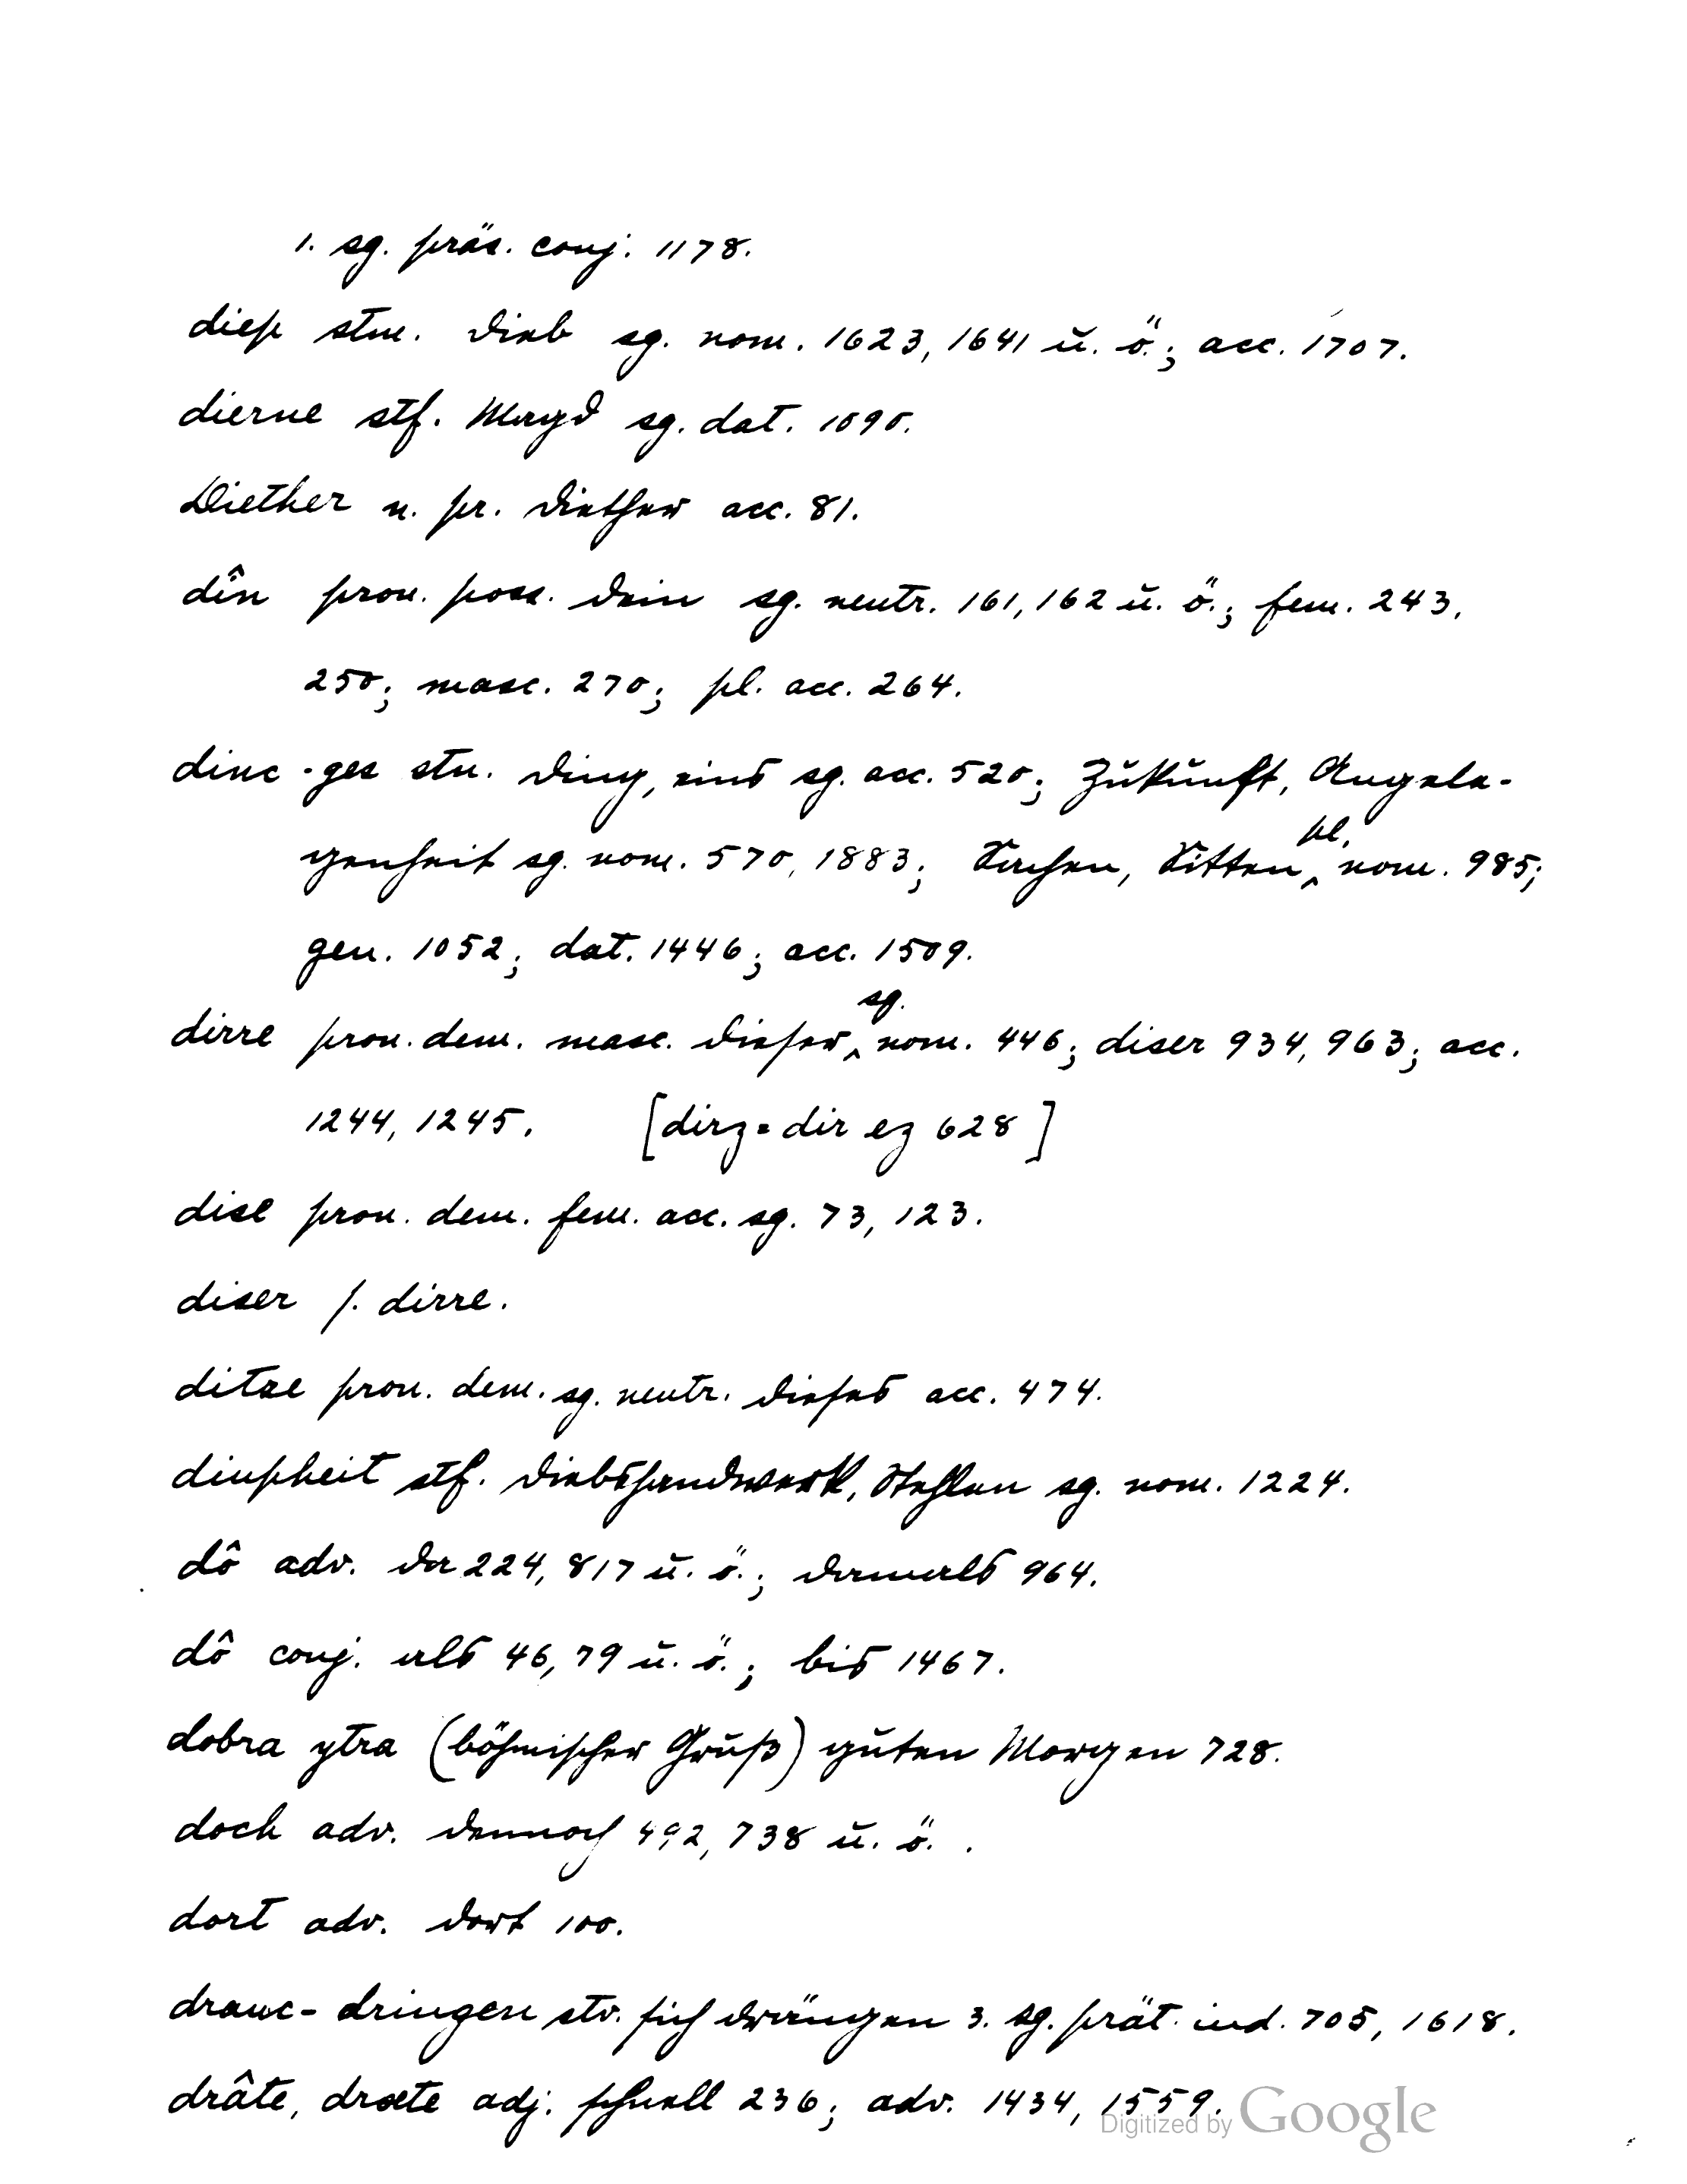 1. sg. präs. conj. 1178.
diep stm. Dieb sg. nom. 1623, 1641 u. ö.; acc. 1707.
dierne stf. Magd sg. dat. 1090.
Diether n. pr. Diether acc. 81.
dîn pron. poss. dein sg. neutr. 161, 162 u. ö.; fem. 243,
250; masc. 270; pl. acc. 264.
dinc -ges stn. Ding, eins sg. acc. 520; Zukunft, Angele-
genheit sg. nom. 570, 1883; Sachen, Sitten pl. nom. 985;
gen. 1052; dat. 1446; acc. 1509.
dirre pron. dem. masc. dieser sg. nom. 446; diser 934, 963; acc.
1244, 1245. [dirz = dir ez 628]
dise pron. dem. fem. acc. sg. 73, 123.
diser s. dirre.
ditze pron. dem. sg. neutr. dieses acc. 474.
diupheit stf. Diebshandwerk, Stehlen sg. nom. 1224.
dô adv. da 224, 817 u. ö.; damals 964.
dô conj. als 46, 79 u. ö.; bis 1467.
dobra ytra (böhmischer Gruß) guten Morgen 728.
doch adv. dennoch 492, 738 u. ö. .
dort adv. dort 100.
dranc - dringen stv. sich drängen 3. sg. prät. ind. 705, 1618.
drâte, dræte adj. schnell 236; adv. 1434, 1559.
Digitized by Google